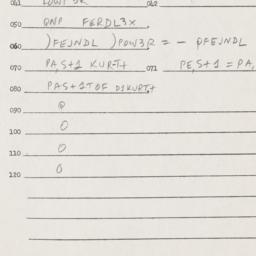 050 QNP FERDL3X
060 )FEJNDL )POW3R = - PFEJNDL
070 PA,S+1 KURT+ 071 PE,S+1 = PA,
080 PAS+1TOF D1KURT+
090 0
100 0
110 0
120 0